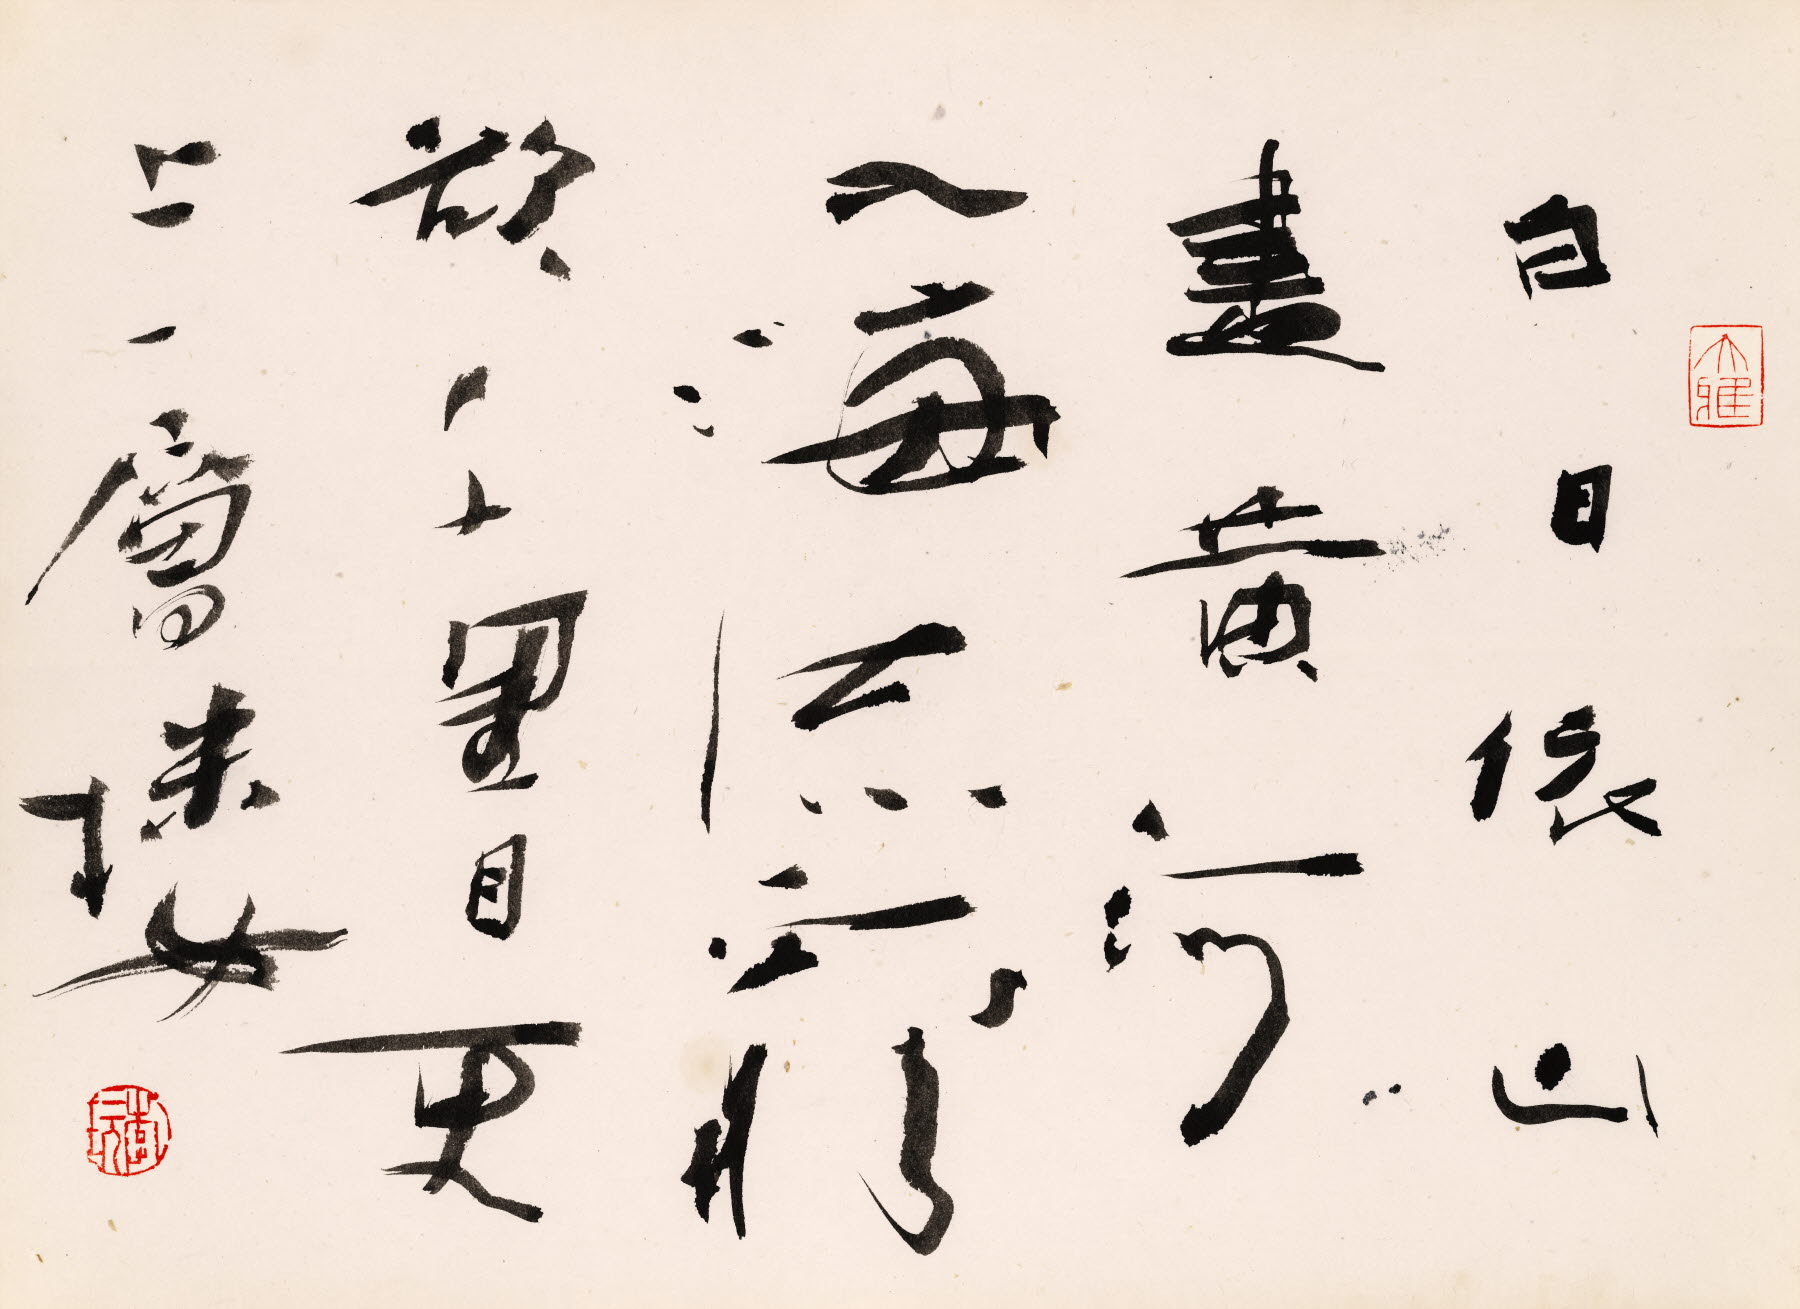 白日依山
盡黃河
入海流窮
欲千里目更
上一層樓
大雅